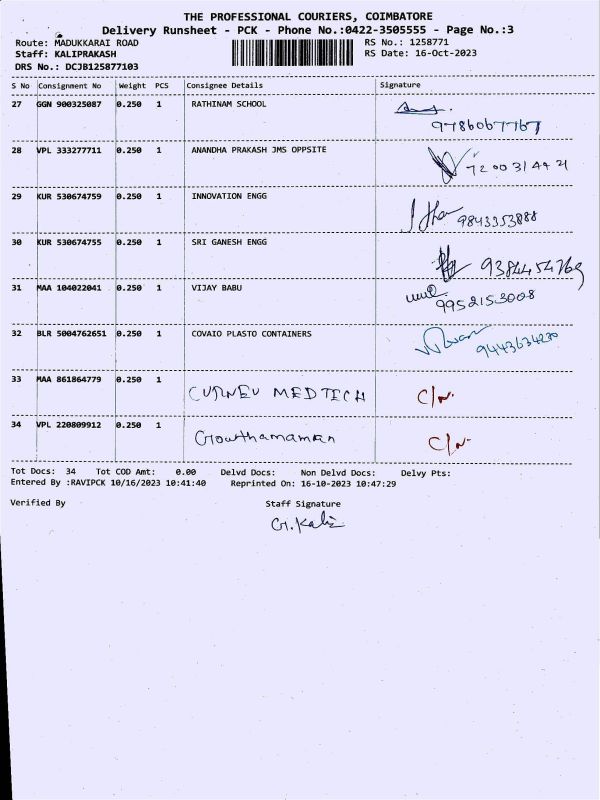 THE PROFESSIONAL COURIERS, COIMBATORE
Delivery Runsheet - PCK - Phone No.:0422-3505555 - Page No.:3
Route: MADUKKARAI ROAD RS No.: 1258771
Staff: KALIPRAKASH RS Date: 16-Oct-2023
DRS No.: DCJB125877103
S No Consignment No Weight PCS Consignee Details Signature
27 GGN 900325087 0.250 1 RATHINAM SCHOOL
9786067767
28 VPL 333277711 0.250 1 ANANDHA PRAKASH JMS OPPSITE
7200314421
29 KUR 530674759 0.250 1 INNOVATION ENGG
9843353888
30 KUR 530674755 0.250 1 SRI GANESH ENGG
9384454769
31 MAA 104022041 0.250 1 VIJAY BABU
9952153008
32 BLR 5004762651 0.250 1 COVAIO PLASTO CONTAINERS
9443634230
33 MAA 861864779 0.250 1
CURNEU MEDTECH C/N.
34 VPL 220809912 0.250 1
Gowthamaman C/N.
Tot Docs: 34 Tot COD Amt: 0.00 Delvd Docs: Non Delvd Docs: Delvy Pts:
Entered By :RAVIPCK 10/16/2023 10:41:40 Reprinted On: 16-10-2023 10:47:29
Verified By Staff Signature
G.Kali